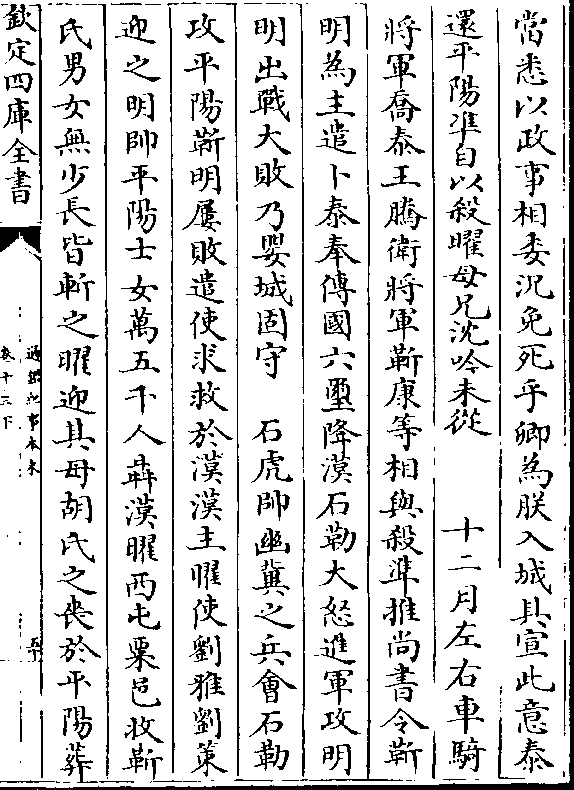 當悉以政事相委况免死乎卿為朕入城具宣此意泰
還平陽準自以殺曜母兄沈吟未從　十二月左右車騎
將軍喬泰王騰衛將軍靳康等相與殺準推尚書令靳
明為主遣卜泰奉傳國六璽降漢石勒大怒進軍攻明
明出戰大敗乃嬰城固守　石虎帥幽冀之兵會石勒
攻平陽靳明屢敗遣使求救於漢漢主曜使劉雅劉策
迎之明帥平陽士女萬五千人犇漢曜西屯粟邑收靳
氏男女無少長皆斬之曜迎其母胡氏之喪於平陽葬
欽定四庫全書
通鑑紀事本末
卷十三下